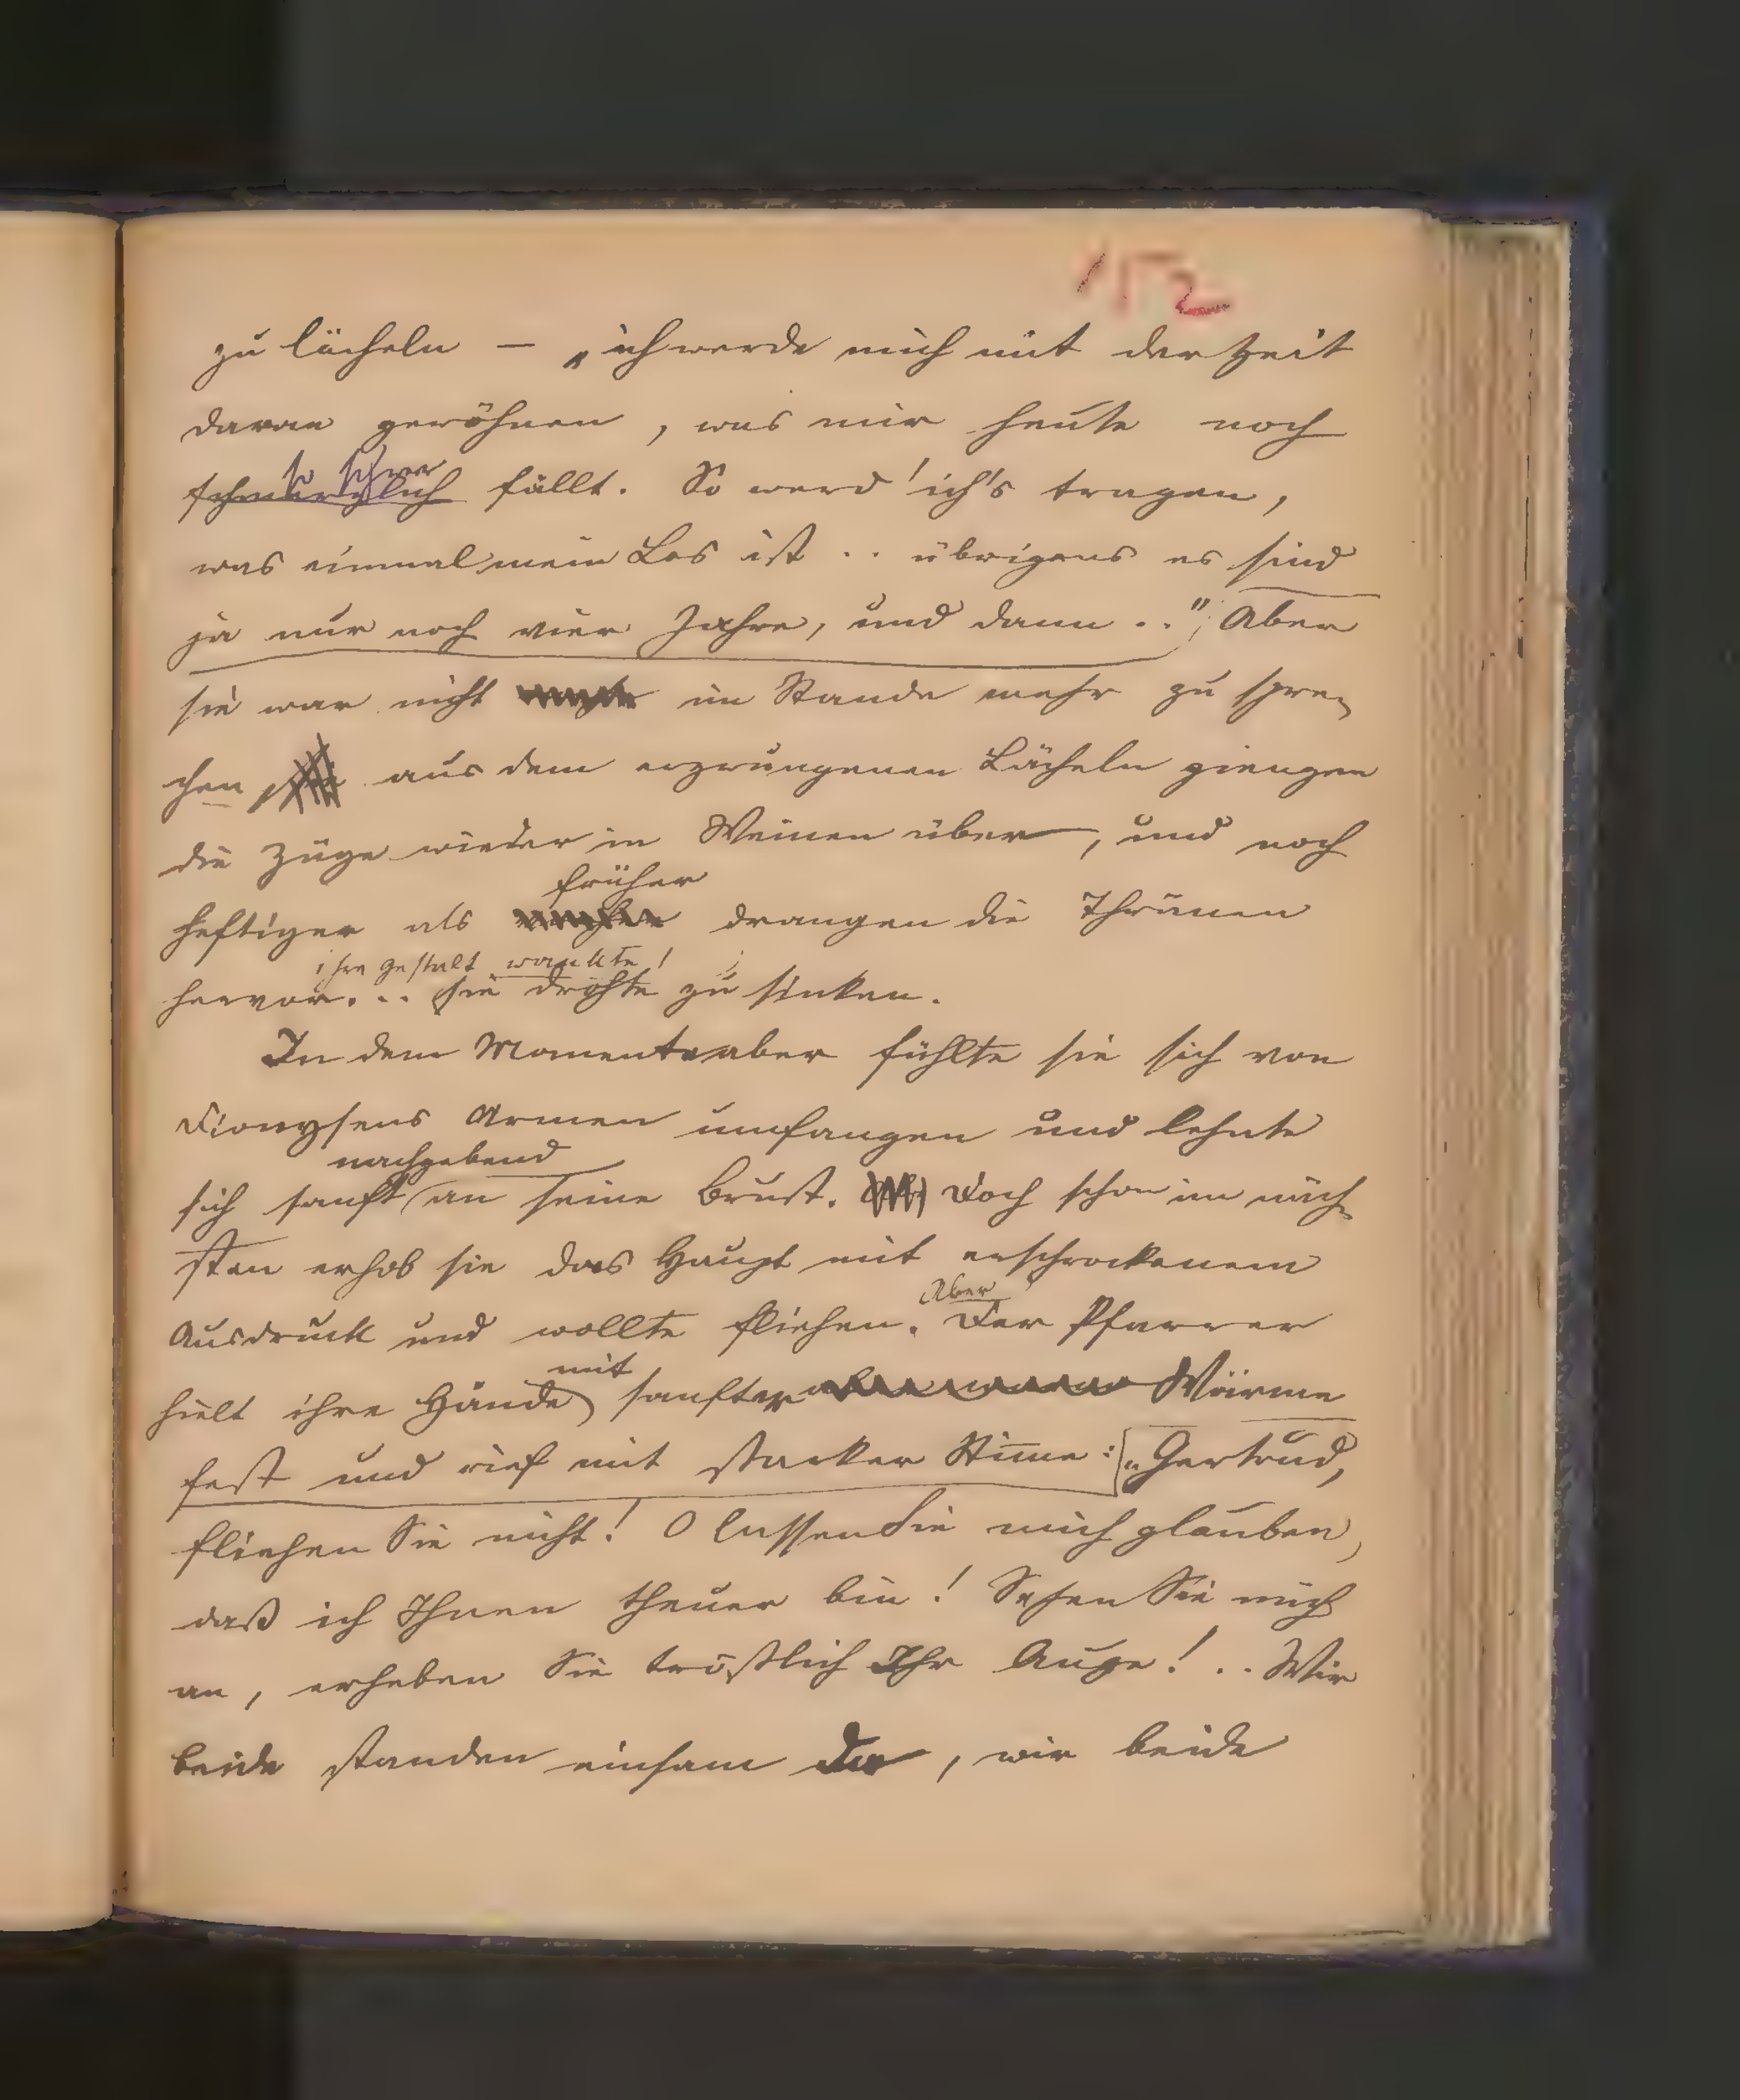 152
zu lächeln – „ich werde mich mit der Zeit
daran gewöhnen, was mir heute noch
so schwer
schmerzlich fällt. So werd' ich's tragen,
was einmal mein Los ist .. übrigens es sind
ja nur noch vier Jahre, und dann .." Aber
sie war nicht im Stande mehr zu spre-
chen, aus dem erzwungenen Lächeln giengen
die Züge wieder in Weinen über, und noch
früher
heftiger als drangen die Thränen
ihre Gestalt wankte!
hervor... sie drohte zu sinken.
In dem Momente aber fühlte sie sich von
Dionysens Armen umfangen und lehnte
nachgebend
sich sanft an seine Brust. Doch schon im näch-
sten erhob sie das Haupt mit erschrockenem
Aber
Ausdruck und wollte fliehen. Der Pfarrer
mit
hielt ihre Hände sanfter Wärme
fest und rief mit starker Stimme: „Gertrud,
fliehen Sie nicht! O lassen Sie mich glauben,
daß ich Ihnen theuer bin! Sehen Sie mich
an, erheben Sie tröstlich Ihr Auge! .. Wir
beide standen einsam da, wir beide